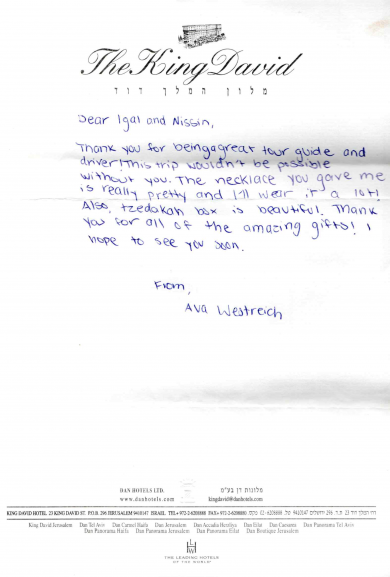 The King David
מלון המלך דוד
Dear Igal and Nissin,
Thank you for being a great tour guide and
driver! This trip wouldn't be possible
without you. The necklace you gave me
is really pretty and I'll wear it a lot!
Also, tzedakah box is beautiful. Thank
you for all of the amazing gifts! I
hope to see you soon.
From,
Ava Westreich
DAN HOTELS LTD. מלונות דן בע"מ
www.danhotels.com kingdavid@danhotels.com
KING DAVID HOTEL 23 KING DAVID ST. P.O.B. 296 JERUSALEM 9410147 ISRAEL TEL+ 972-2-6208888 FAX+ 972-2-6208880 מלון המלך דוד 23 ת.ד. 296 ירושלים 9410147 טל. 02-6208888
King David Jerusalem Dan Tel Aviv Dan Carmel Haifa Dan Jerusalem Dan Accadia Herzliya Dan Eilat Dan Caesarea Dan Panorama Tel Aviv
Dan Panorama Haifa Dan Panorama Jerusalem Dan Panorama Eilat Dan Boutique Jerusalem
THE LEADING HOTELS
OF THE WORLD